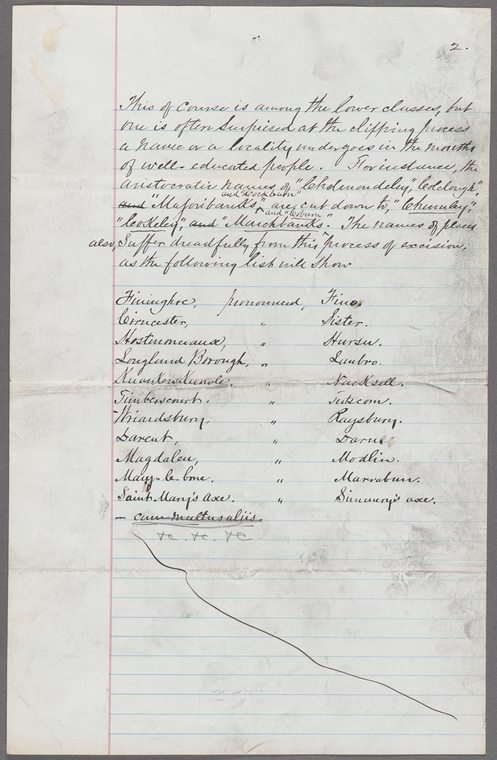 2.
This of course is among the lower classes, but
one is often Surprised at the clipping process
a name or a locality undergoes in the mouths
of well-educated people. For instance, the
aristocratic names of "Cholmondeley, Colclough",
and Cockburn"
and Majoribanks" are cut down to, "Chumley,"
and "Coburn"
"Cokeley," and "Marchbanks". The names of places
also, Suffer dreadfully from this process of excision,
as the following list will show
Fininghoe, pronounced, Fino.
Cirncester, " Sister.
Hostmonceaux, " Hursu.
Longland Borough, " Lanbro.
" Nacksell.
Timberscourt. "
Wriardsbury, " Raysbury.
Darent, " Darn
Magdalen, " Modlin.
Mary-le-bone. " Marrabun.
Saint Mary's Axe. " Simmery's axe.
— cum multus aliis.
&c. &c. &c